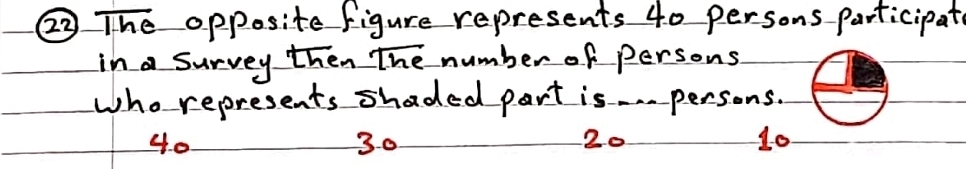 22 The opposite figure represents 40 persons participate
in a survey then The number of persons
who represents shaded part is .... persons.
40 30 20 10